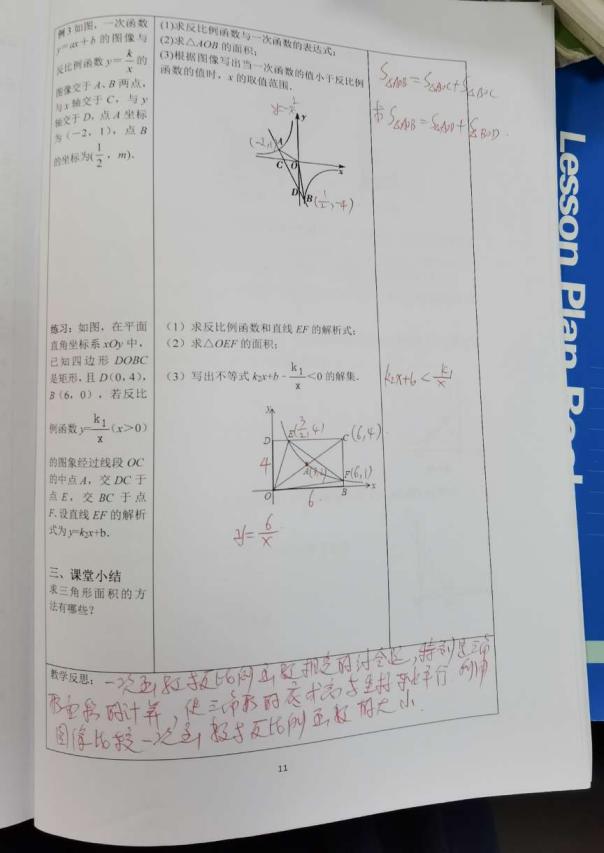 例3 如图，一次函数
y=ax+b 的图像与
反比例函数 y=k/x 的
图像交于 A、B 两点，
与 x 轴交于 C，与 y
轴交于 D，点 A 坐标
为（－2，1），点 B
的坐标为(1/2，m).
(1)求反比例函数与一次函数的表达式；
(2)求△AOB 的面积；
(3)根据图像写出当一次函数的值小于反比例
函数的值时，x 的取值范围.
y
(-2,1) A
C O x
D B (1/2,-4)
S△AOB=S△AOC+S△BOC
S△AOB=S△AOD+S△BOD.
练习：如图，在平面
直角坐标系 xOy 中，
已知四边形 DOBC
是矩形，且 D（0，4），
B（6，0），若反比
例函数 y=k1/x (x>0)
的图象经过线段 OC
的中点 A，交 DC 于
点 E，交 BC 于点
F.设直线 EF 的解析
式为 y=k2x+b.
（1）求反比例函数和直线 EF 的解析式；
（2）求△OEF 的面积；
（3）写出不等式 k2x+b - k1/x <0 的解集.
k2x+b < k1/x
y
D E(3/2,4) C(6,4)
4 A(3,2) F(6,1)
O B x
6
y=6/x
三、课堂小结
求三角形面积的方
法有哪些？
教学反思：一次函数与反比例函数相交的讨论题，特别是三角
形面积的计算，使三角形的底或高与坐标轴平行
图像比较一次函数与反比例函数的大小.
11
Lesson Plan Book